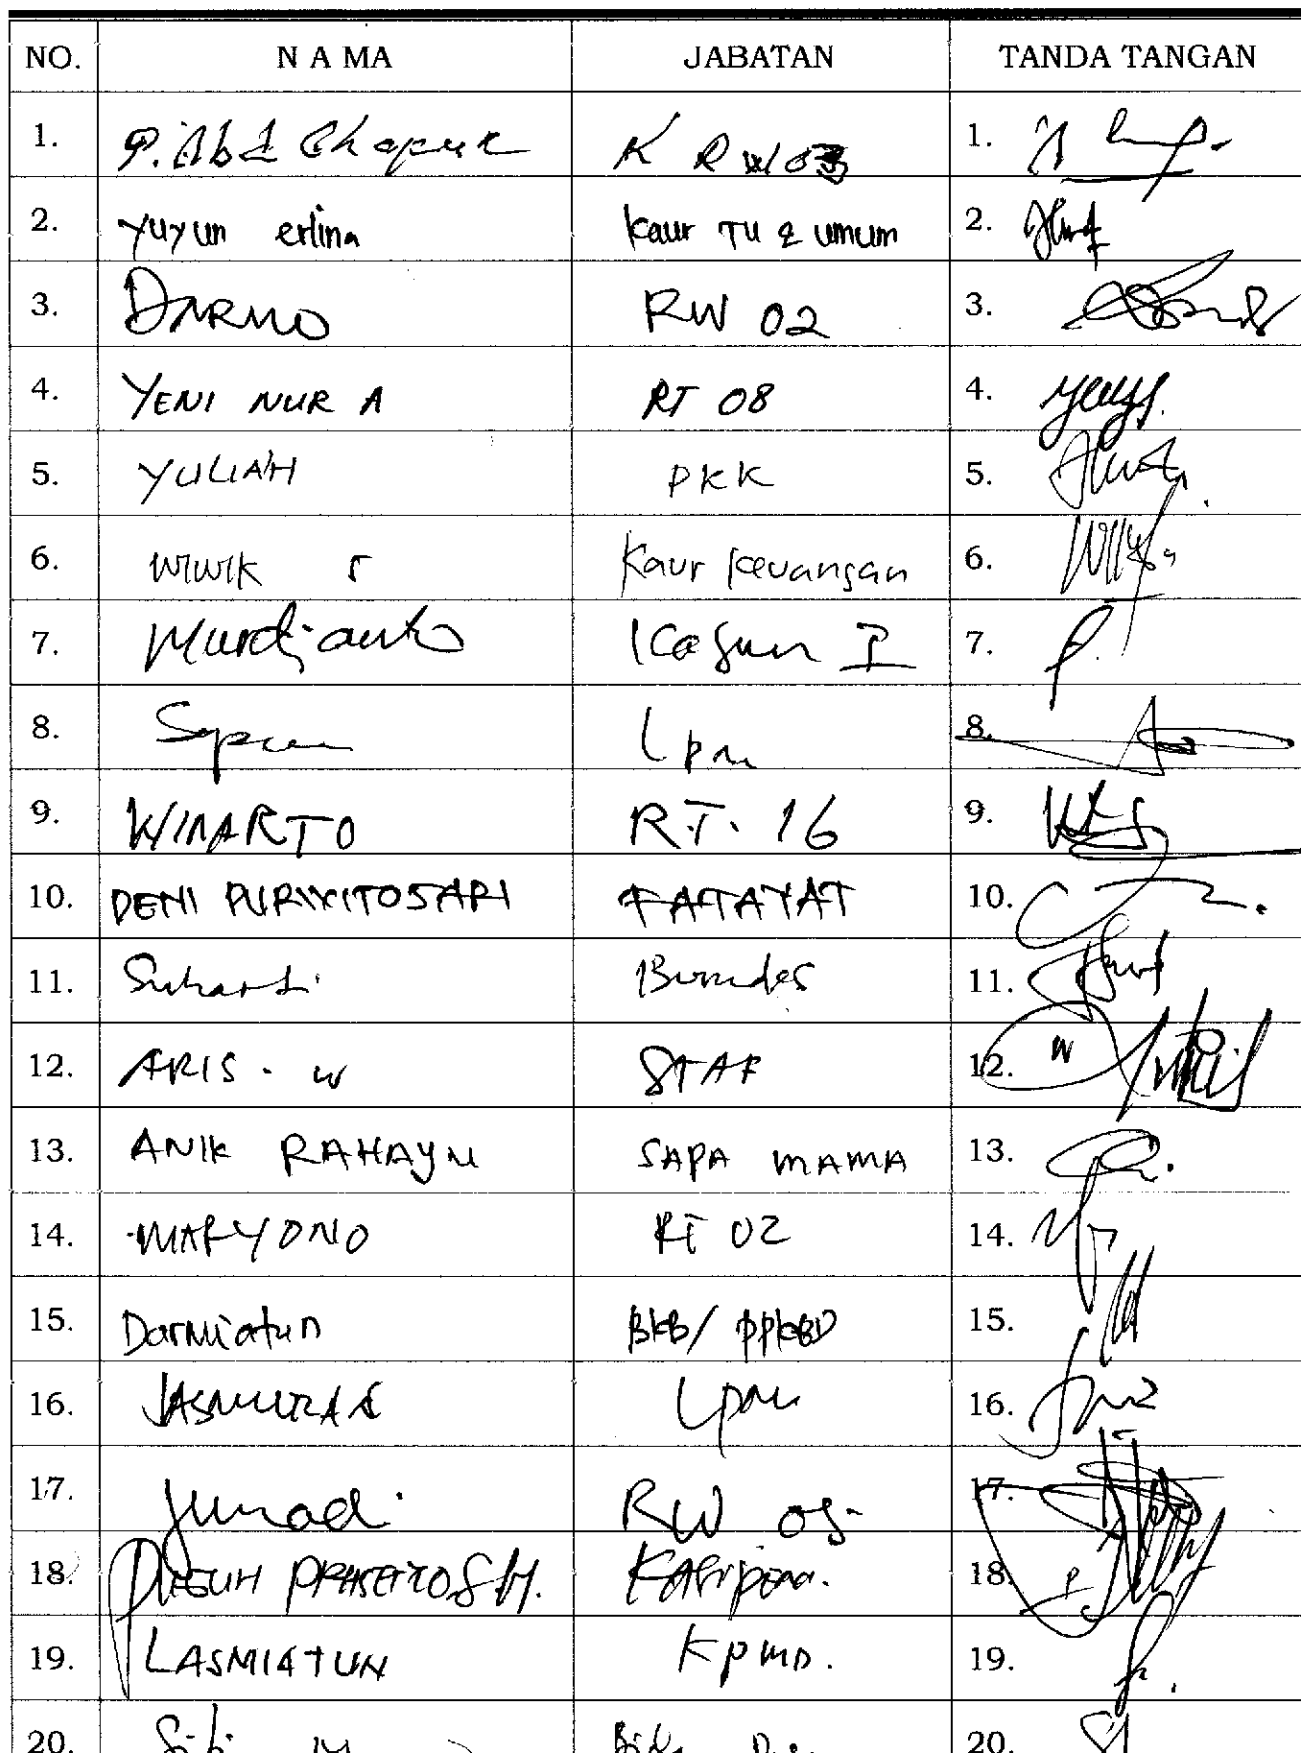 NO. N A MA JABATAN TANDA TANGAN
1. P. Abd Ghapur K RW 03 1.
2. yuyun erlina kaur TU & umum 2.
3. DARMO RW 02 3.
4. YENI NUR A RT 08 4.
5. YULIAH PKK 5.
6. WIWIK S Kaur keuangan 6.
7. Murdjanto Kasun I 7.
8. Lpm 8.
9. WINARTO RT. 16 9.
10. DENI PURWITOSARI FATAYAT 10.
11. Suharti Bumdes 11.
12. ARIS. W STAF 12.
13. ANIK RAHAYU SAPA MAMA 13.
14. MARYONO RT 02 14.
15. Darmiatun BKB/ PPKBD 15.
16. Lpm 16.
17. Junadi RW 17.
18. 18.
19. LASMIATUN KPMD. 19.
20. Siti 20.